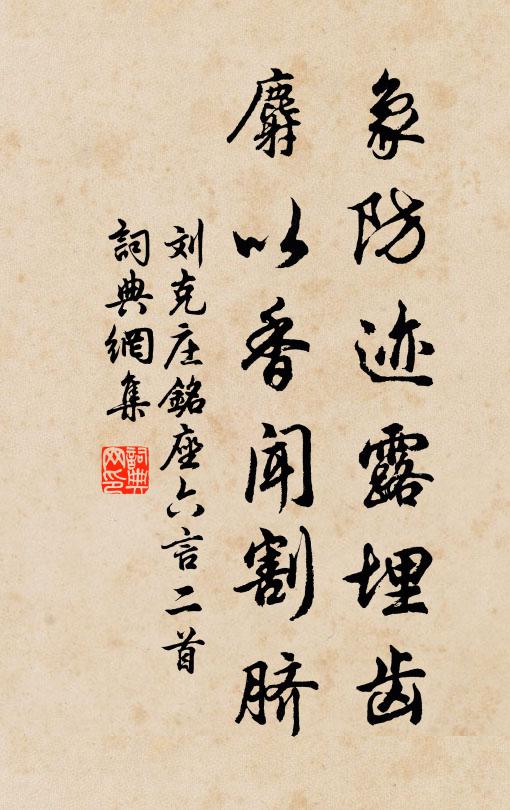 象防迹露埋齿
麝以香闻割脐
刘克庄銘座六言二首
詞典網集
詞典网印